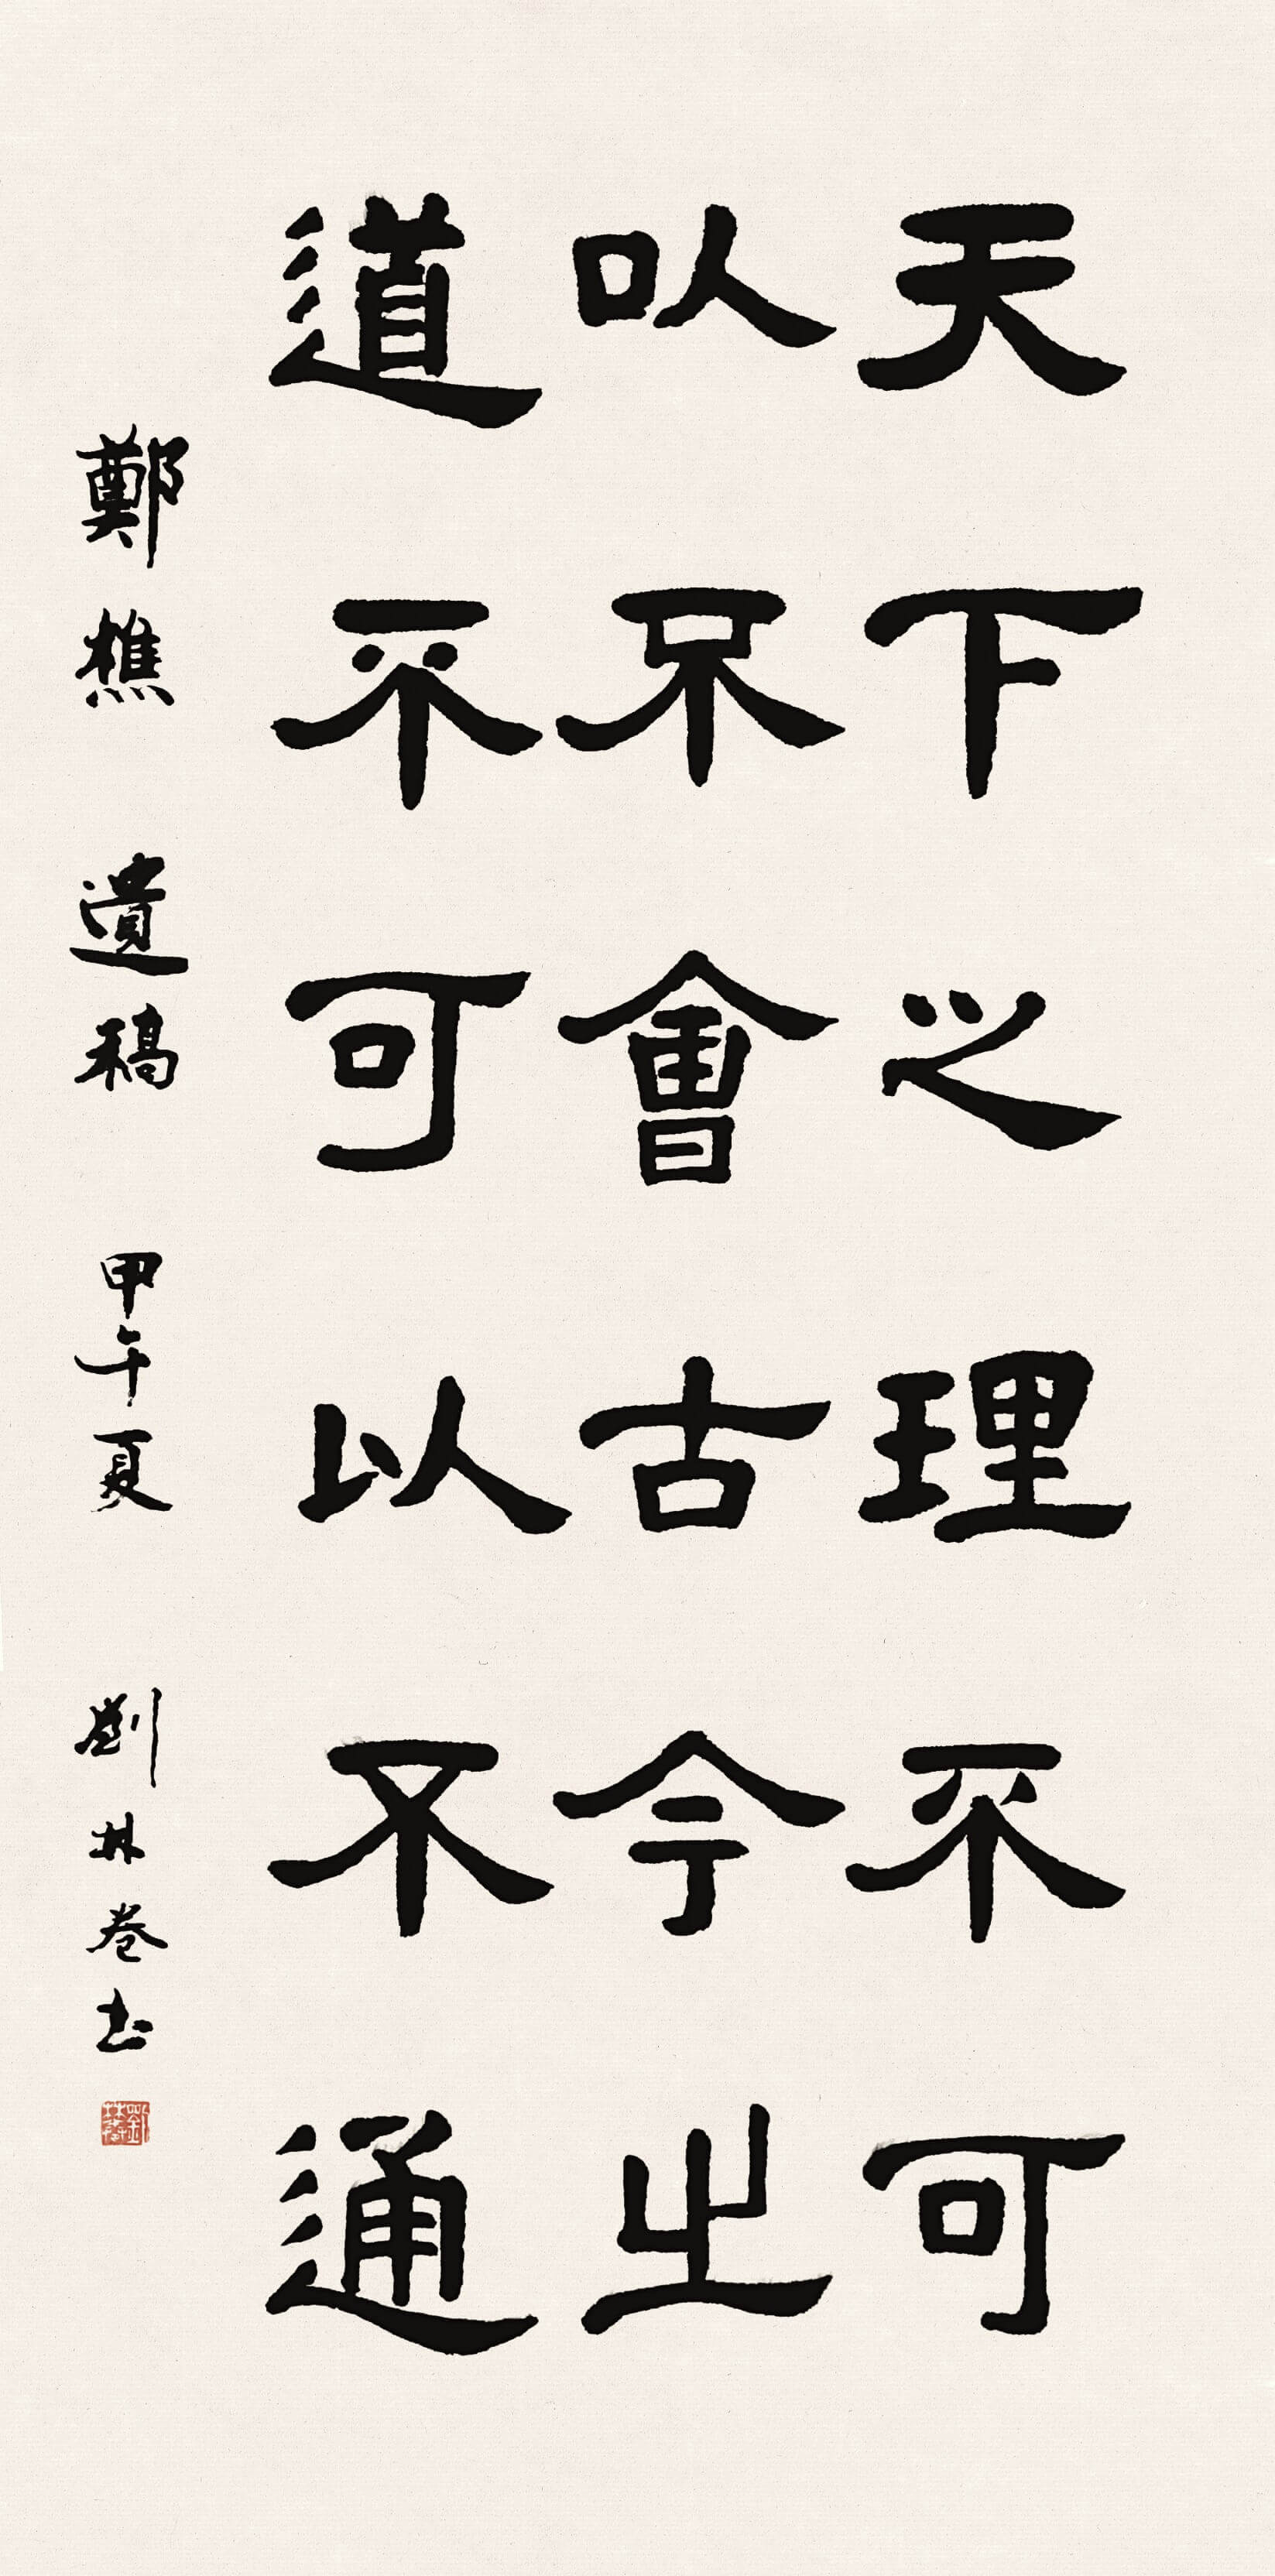 天下之理不可
以不會古今之
道不可以不通
鄭樵遺稿 甲午夏 劉林卷書